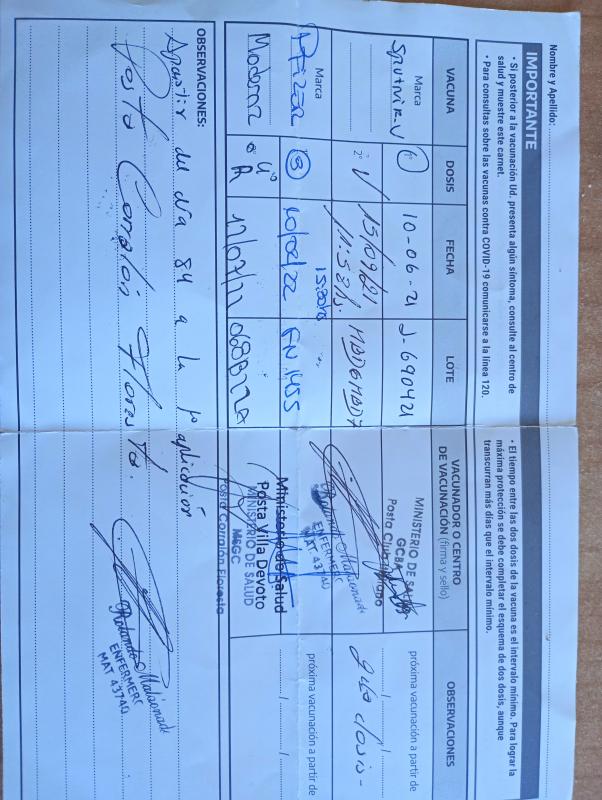 Nombre y Apellido:
IMPORTANTE
• Si posterior a la vacunación Ud. presenta algún síntoma, consulte al centro de
salud y muestre este carnet.
• Para consultas sobre las vacunas contra COVID-19 comunicarse a la línea 120.
• El tiempo entre las dos dosis de la vacuna es el intervalo mínimo. Para lograr la
máxima protección se debe completar el esquema de dos dosis, aunque
transcurran más días que el intervalo mínimo.
VACUNA DOSIS FECHA LOTE VACUNADOR O CENTRO DE VACUNACIÓN (firma y sello) OBSERVACIONES
Marca 1° próxima vacunación a partir de
Sputnik-V 10-06-21 J-690421
MINISTERIO DE SALUD
GCBA
Posta Club
2° 15/09/21 MBD6MBD7 2da dosis-
11:52hs.
Rolando Maldonado
ENFERMERO
MAT 43740
Marca próxima vacunación a partir de
Pfizer 3 10/02/22 FN 1455
Ministerio de Salud
Posta Villa Devoto
Moderna 4° R 12/07/22 068B22A
MINISTERIO DE SALUD
MSGC
Posta Corralón Floresta
OBSERVACIONES:
Apartir del día 84 a la 1° aplicación
Posta Corralón Floresta.
Rolando Maldonado
ENFERMERO
MAT 43740